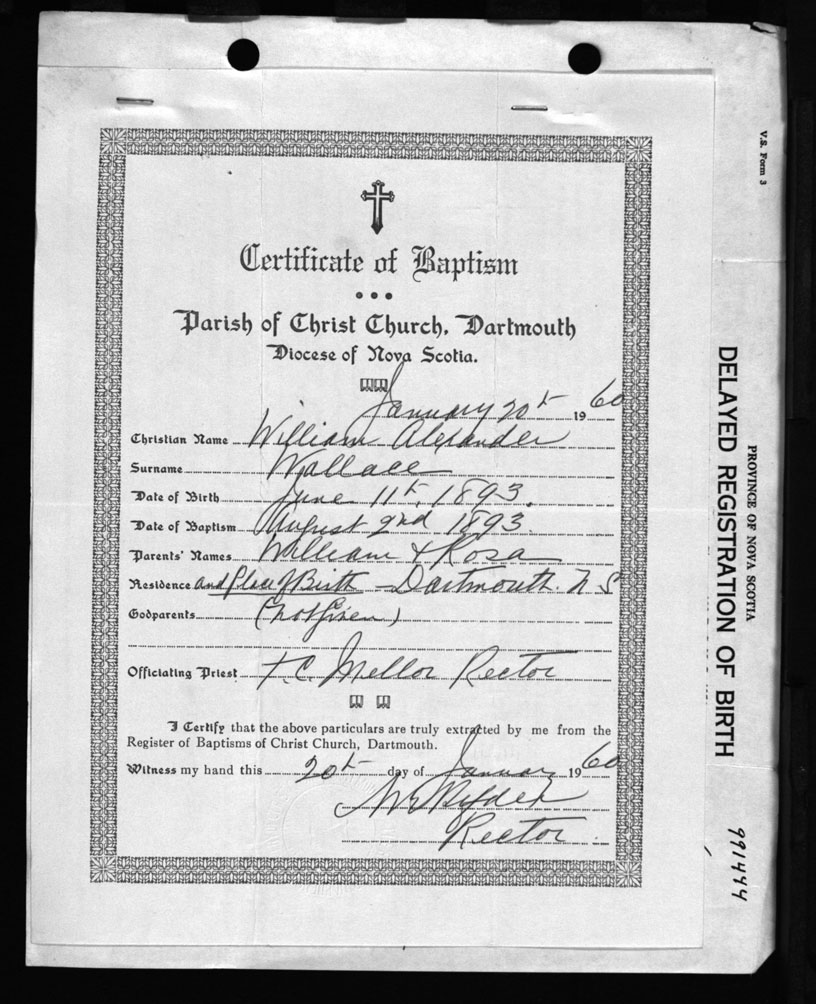 Certificate of Baptism
Parish of Christ Church, Dartmouth
Diocese of Nova Scotia.
January 20th 1960
Christian Name William Alexander
Surname Wallace
Date of Birth June 11th, 1893.
Date of Baptism August 2nd 1893.
Parents' Names William & Rosa
Residence and place of Birth - Dartmouth. N. S.
Godparents (not given)
Officiating Priest F. C. Mellor Rector
I Certify that the above particulars are truly extracted by me from the
Register of Baptisms of Christ Church, Dartmouth.
Witness my hand this 20th day of January 1960
Rector.
V.S. Form 3
PROVINCE OF NOVA SCOTIA
DELAYED REGISTRATION OF BIRTH
991444